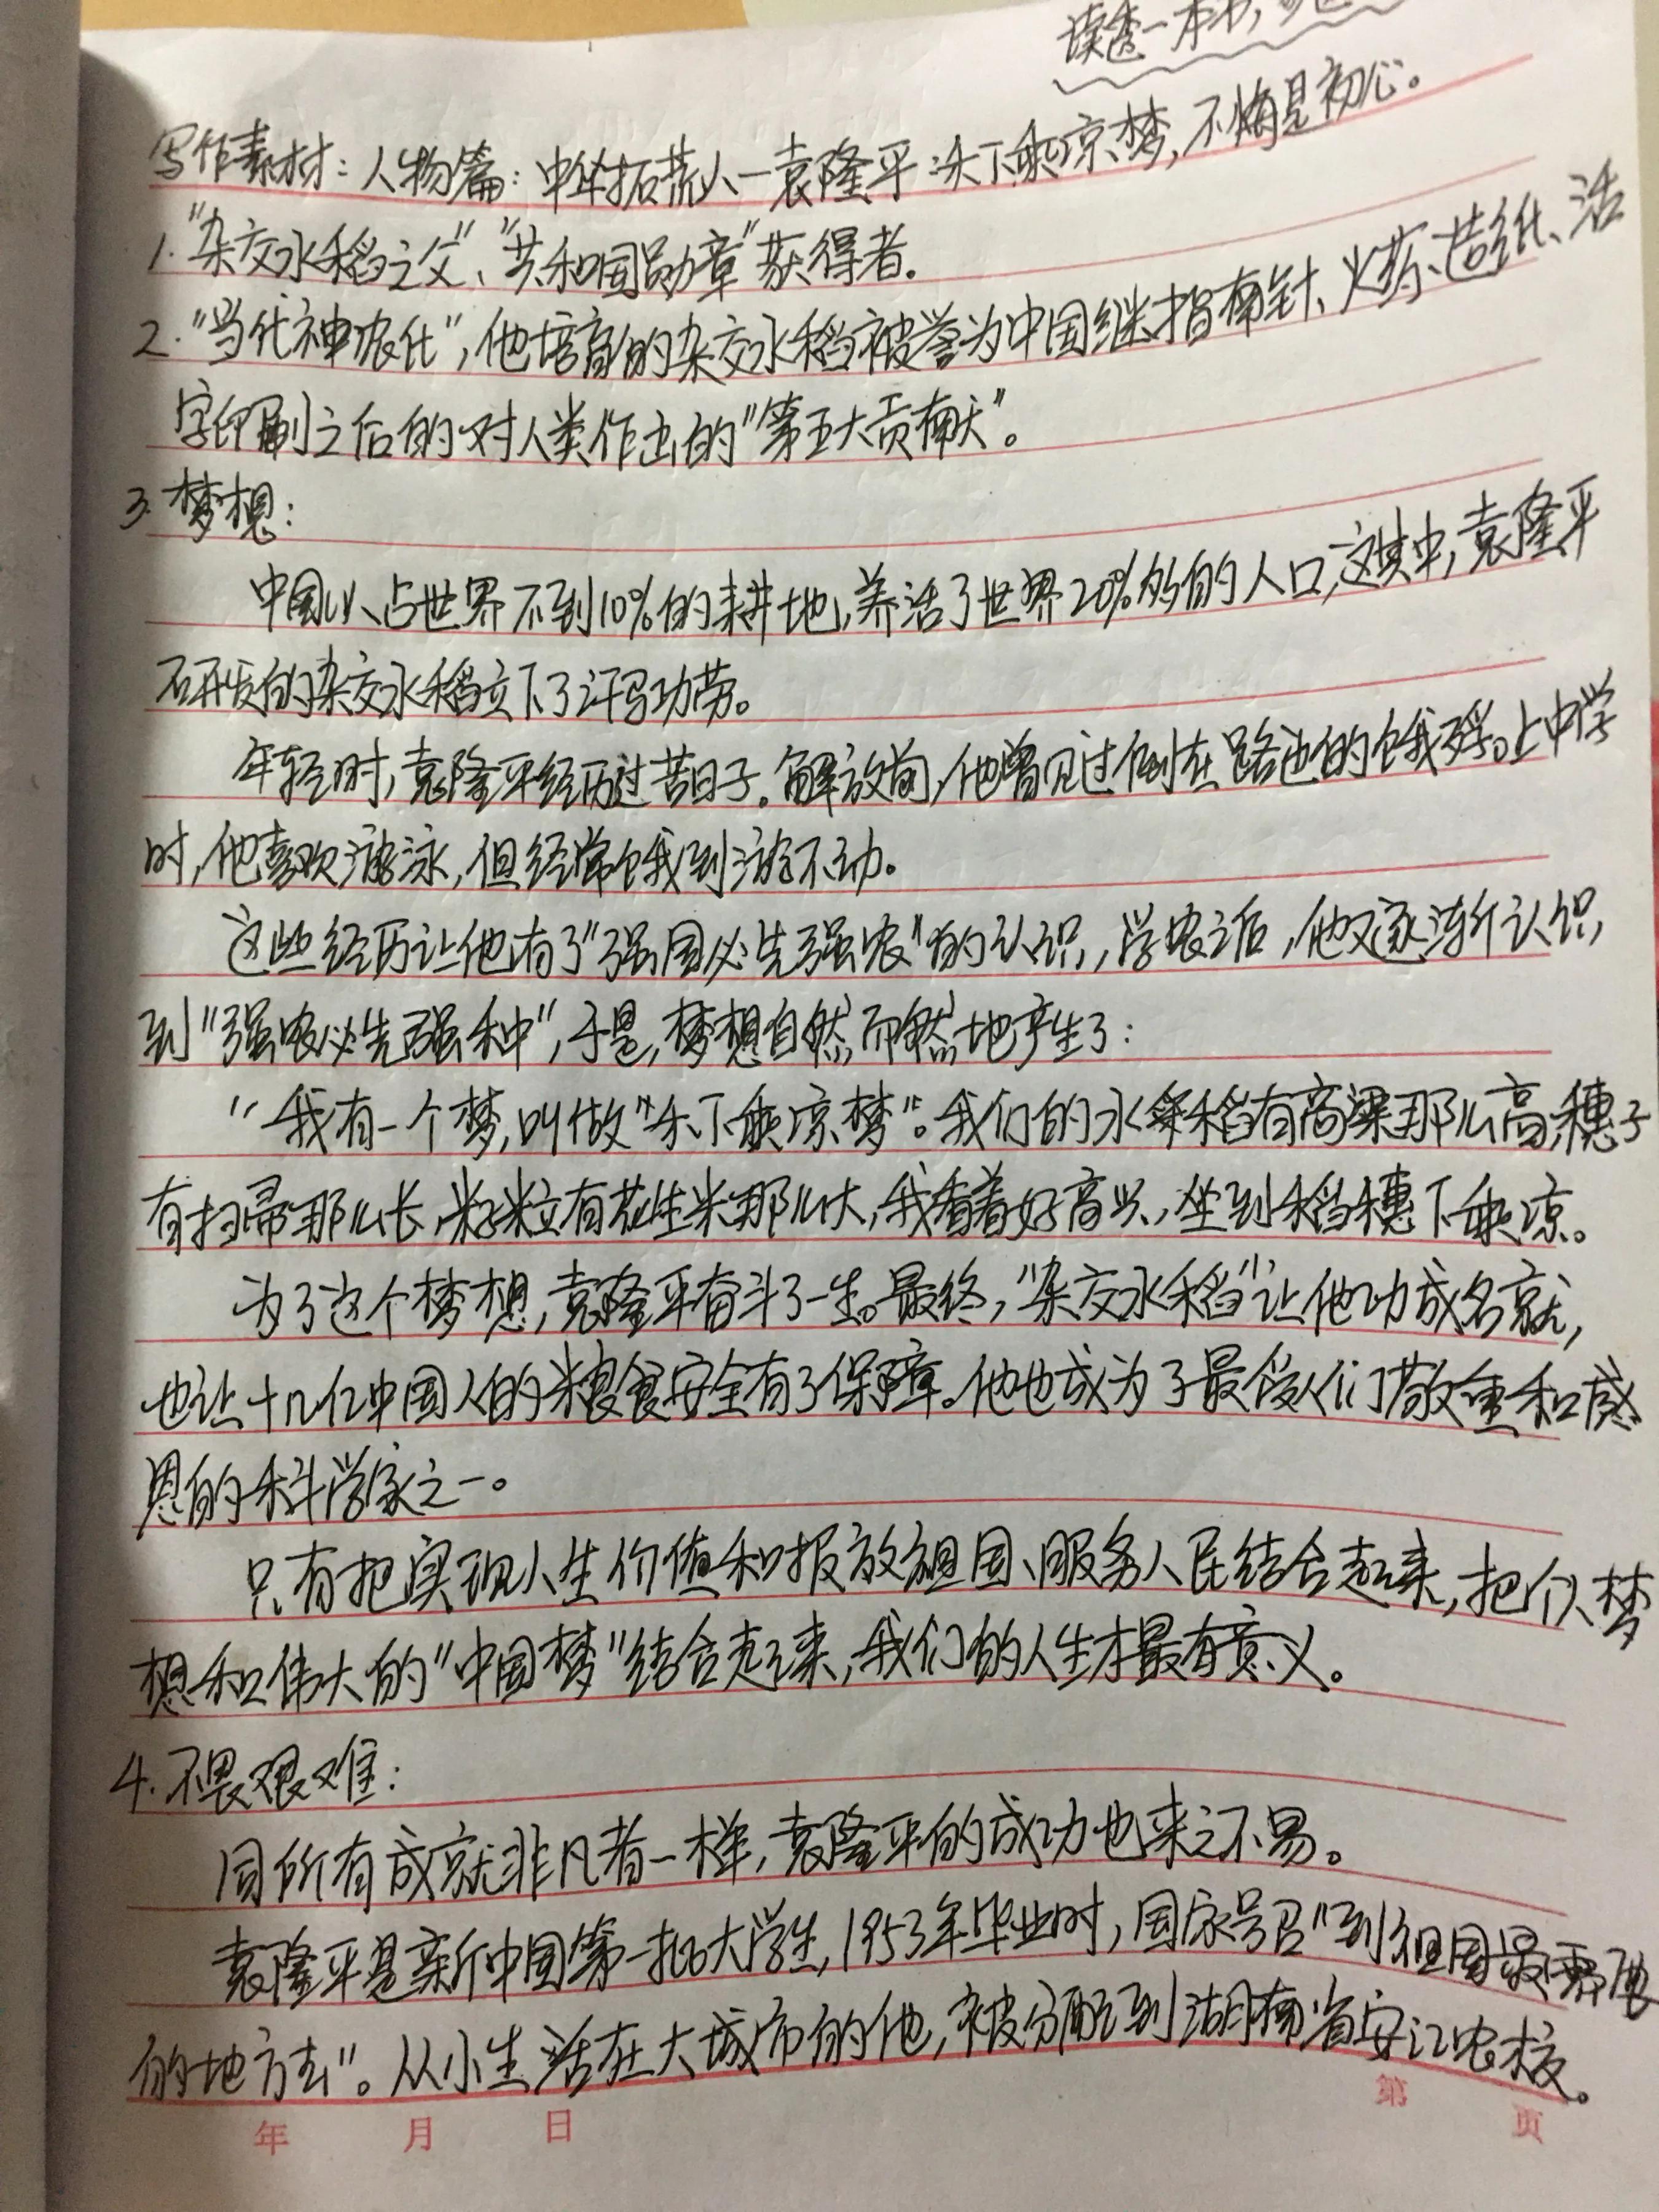 读透一本书，
写作素材：人物篇：中华拓荒人—袁隆平：禾下乘凉梦，不悔是初心。
1."杂交水稻之父"、"共和国勋章"获得者。
2."当代神农氏"，他培育的杂交水稻被誉为中国继指南针、火药、造纸、活
字印刷之后的对人类作出的"第五大贡献"。
3.梦想：
中国以占世界不到10%的耕地，养活了世界20%多的人口，这其中，袁隆平
研发的杂交水稻立下了汗马功劳。
年轻时，袁隆平经历过苦日子。解放前，他曾见过倒在路边的饿殍。上中学
时，他喜欢游泳，但经常饿到游不动。
这些经历让他有了"强国必先强农"的认识，学农之后，他又逐渐认识
到"强农必先强种"，于是，梦想自然而然地产生了：
"我有一个梦，叫做"禾下乘凉梦"。我们的水稻有高粱那么高，穗子
有扫帚那么长，籽粒有花生米那么大，我看着好高兴，坐到稻穗下乘凉。
为了这个梦想，袁隆平奋斗了一生。最终，"杂交水稻"让他功成名就，
也让十几亿中国人的粮食安全有了保障。他也成为了最受人们敬重和感
恩的科学家之一。
只有把实现人生价值和报效祖国、服务人民结合起来，把个人梦
想和伟大的"中国梦"结合起来，我们的人生才最有意义。
4.不畏艰难：
同所有成就非凡者一样，袁隆平的成功也来之不易。
袁隆平是新中国第一批大学生，1953年毕业时，国家号召"到祖国最需要
的地方去"。从小生活在大城市的他，被分配到湖南省安江农校。
年 月 日 第 页